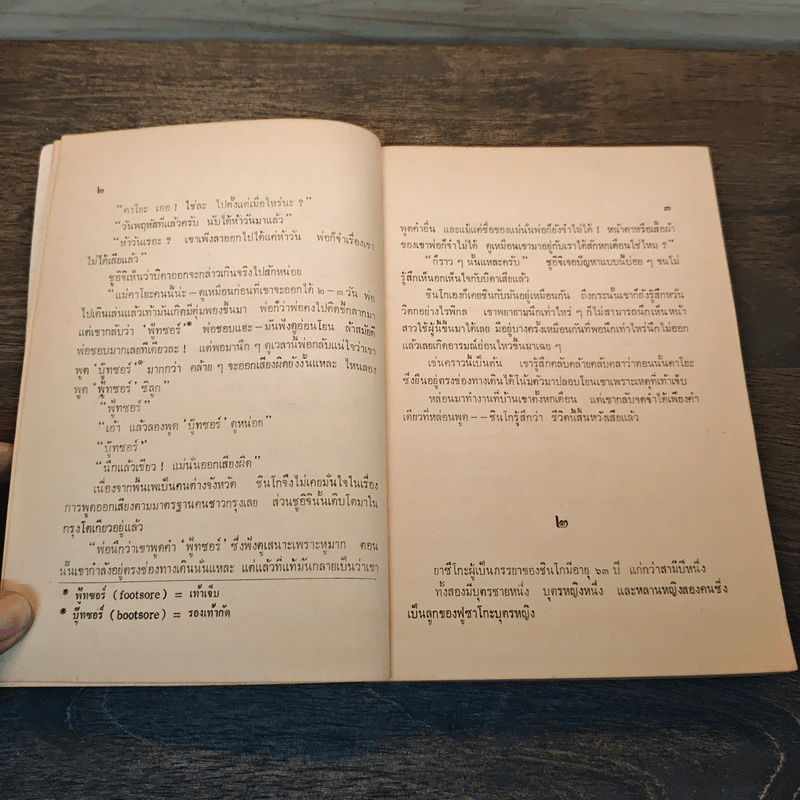 ๒
“คาโยะ เธอ ! ใช่ละ ไปตั้งแต่เมื่อไหร่นะ ?”
“วันพฤหัสที่แล้วครับ นับได้ห้าวันมาแล้ว”
“ห้าวันเรอะ ? เขาเพิ่งลาออกไปได้แค่ห้าวัน พ่อก็จำเรื่องเขา
ไม่ได้เสียแล้ว”
ชูอิจิเห็นว่าบิดาออกจะกล่าวเกินจริงไปสักหน่อย
“แม่คาโยะคนนี้น่ะ – ดูเหมือนก่อนที่เขาจะออกได้ ๒ – ๓ วัน พ่อ
ไปเดินเล่นแล้วเท้ามันเกิดมีตุ่มพองขึ้นมา พ่อก็ว่าพ่อคงไปติดขี้กลากมา
แต่เขากลับว่า ‘ฟุ๊ทซอร์’* พ่อชอบแฮะ – มันฟังดูอ่อนโยน ล้าสมัยดี
พ่อชอบมากเลยทีเดียวละ ! แต่พอมานึก ๆ ดูเวลานี้พ่อกลับแน่ใจว่าเขา
พูด ‘บู๊ทซอร์’* มากกว่า คล้าย ๆ จะออกเสียงผิดยังงั้นแหละ ไหนลอง
พูด ‘ฟุ๊ทซอร์’ ซิลูก”
“ฟุ๊ทซอร์”
“เอ้า แล้วลองพูด ‘บู๊ทซอร์’ ดูหน่อย”
“บู๊ทซอร์”
“นึกแล้วเชียว ! แม่นั่นออกเสียงผิด”
เนื่องจากพื้นเพเป็นคนต่างจังหวัด ชินโกจึงไม่เคยมั่นใจในเรื่อง
การพูดออกเสียงตามมาตรฐานคนชาวกรุงเลย ส่วนชูอิจินั้นเติบโตมาใน
กรุงโตเกียวอยู่แล้ว
“พ่อนึกว่าเขาพูดคำ ‘ฟุ๊ทซอร์’ ซึ่งฟังดูเสนาะเพราะหูมาก ตอน
นั้นเขากำลังอยู่ตรงช่องทางเดินนั่นแหละ แต่แล้วที่แท้มันกลายเป็นว่าเขา
* ฟุ๊ทซอร์ (footsore) = เท้าเจ็บ
* บู๊ทซอร์ (bootsore) = รองเท้ากัด
๓
พูดคำอื่น และแม้แต่ชื่อของแม่นั่นพ่อก็ยังจำไม่ได้ ! หน้าตาหรือเสื้อผ้า
ของเขาพ่อก็จำไม่ได้ ดูเหมือนเขามาอยู่กับเราได้สักหกเดือนใช่ไหม ?”
“ก็ราว ๆ นั้นแหละครับ” ชูอิจิเจอปัญหาแบบนี้บ่อย ๆ จนไม่
รู้สึกเห็นอกเห็นใจกับบิดาเสียแล้ว
ชินโกเองก็เคยชินกับมันอยู่เหมือนกัน ถึงกระนั้นเขาก็ยังรู้สึกหวั่น
วิตกอย่างไรพิกล เขาพยายามนึกเท่าไหร่ ๆ ก็ไม่สามารถนึกเห็นหน้า
สาวใช้ผู้นี้ขึ้นมาได้เลย มีอยู่บางครั้งเหมือนกันที่พอนึกเท่าไหร่นึกไม่ออก
แล้วเลยเกิดอารมณ์อ่อนไหวขึ้นมาเฉย ๆ
เช่นคราวนี้เป็นต้น เขารู้สึกคลับคล้ายคลับคลาว่าตอนนั้นคาโยะ
ซึ่งยืนอยู่ตรงช่องทางเดินได้โน้มตัวมาปลอบโยนเขาเพราะเหตุที่เท้าเจ็บ
หล่อนมาทำงานที่บ้านเขาตั้งหกเดือน แต่เขากลับจดจำได้เพียงคำ
เดียวที่หล่อนพูด – – ชินโกรู้สึกว่า ชีวิตนี้สิ้นหวังเสียแล้ว
๒
ยาซึโกะผู้เป็นภรรยาของชินโกมีอายุ ๖๓ ปี แก่กว่าสามีปีหนึ่ง
ทั้งสองมีบุตรชายหนึ่ง บุตรหญิงหนึ่ง และหลานหญิงสองคนซึ่ง
เป็นลูกของฟูซาโกะบุตรหญิง